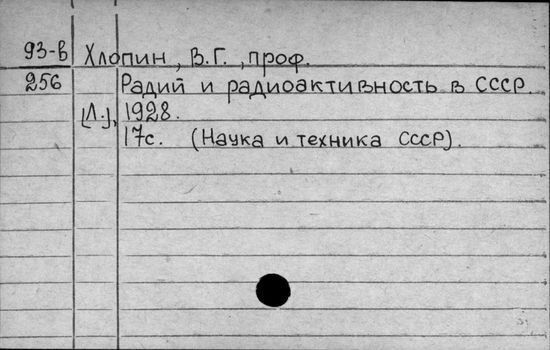 93-в Хлопин, В.Г., проф.
256 Радий и радиоактивность в СССР.
[Л.], 1928.
17с. (Наука и техника СССР).